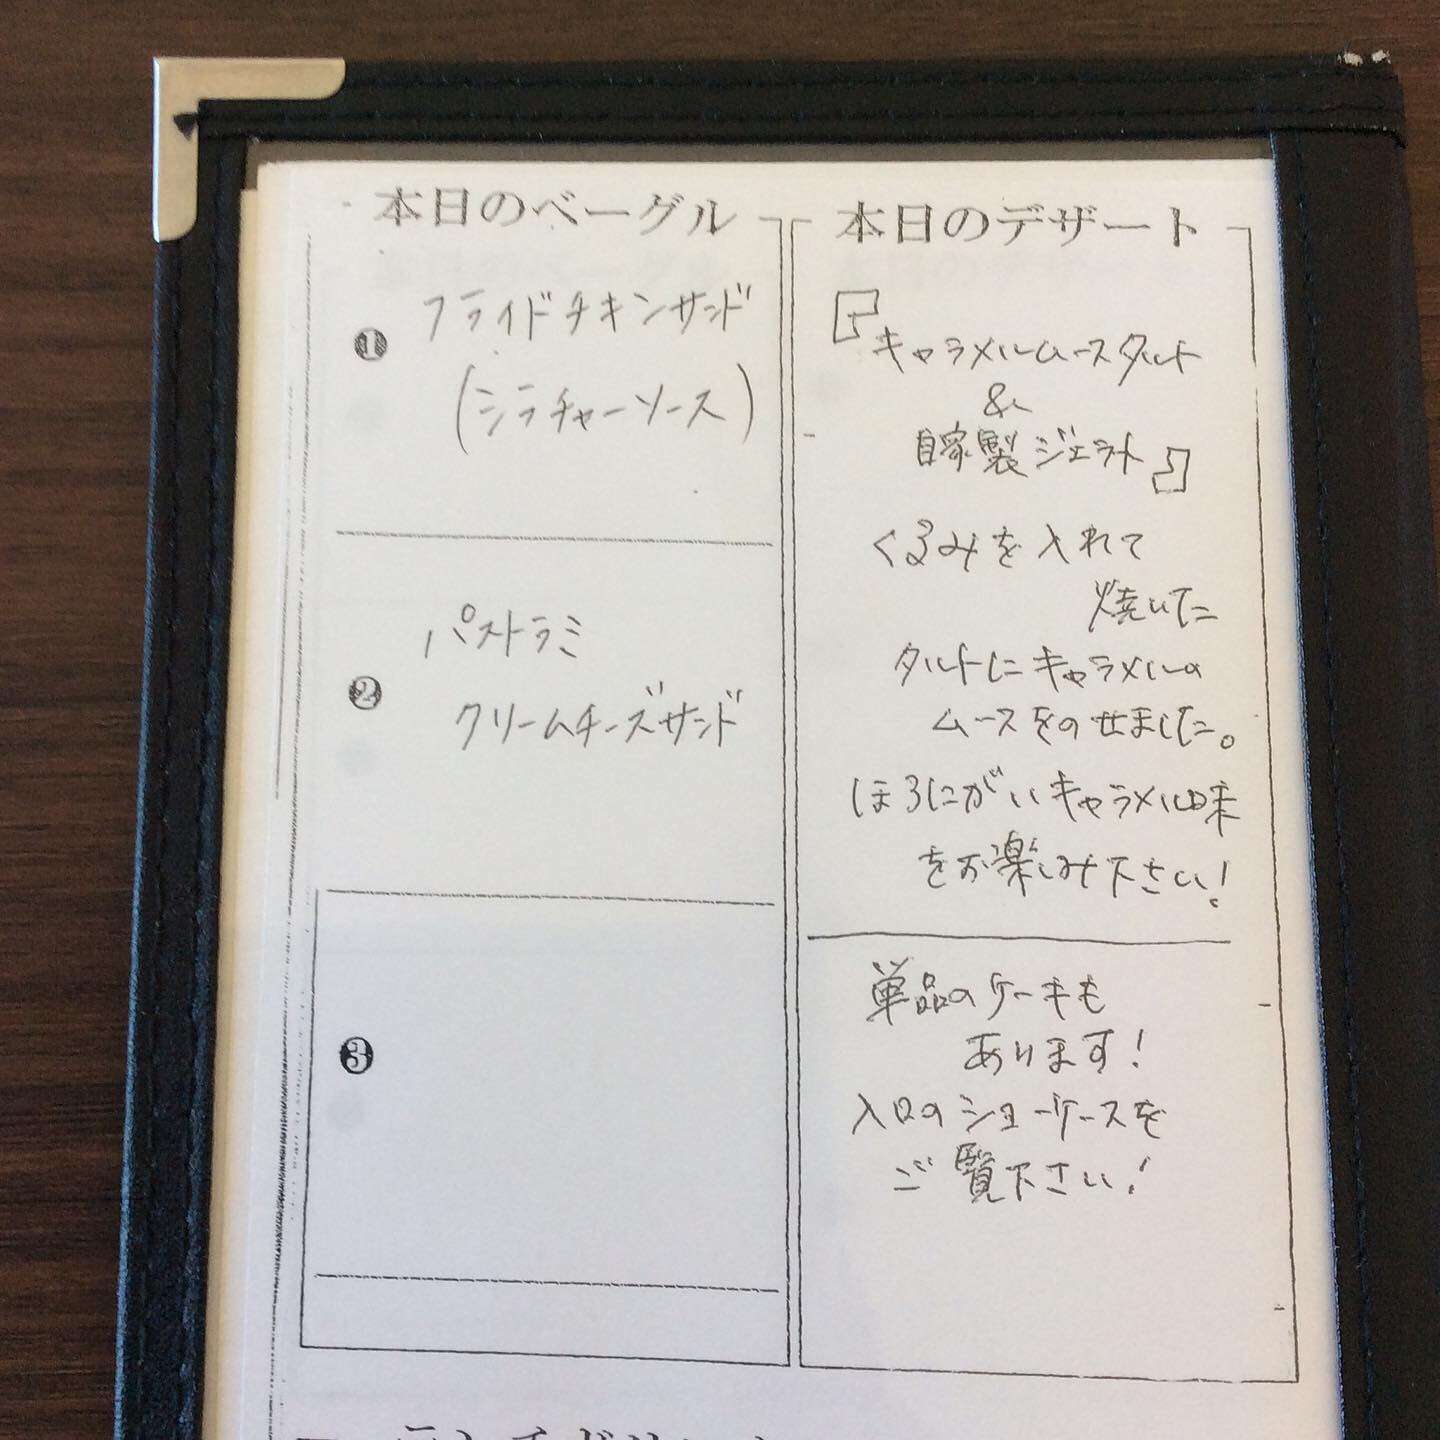 本日のベーグル
❶
フライドチキンサンド
(シラチャーソース)
❷
パストラミ
クリームチーズサンド
❸
本日のデザート
『キャラメルムースタルト
&
自家製ジェラート』
くるみを入れて
焼いた
タルトにキャラメルの
ムースをのせました。
ほろにがいキャラメル味
をお楽しみ下さい!
単品のケーキも
あります!
入口のショーケースを
ご覧下さい!